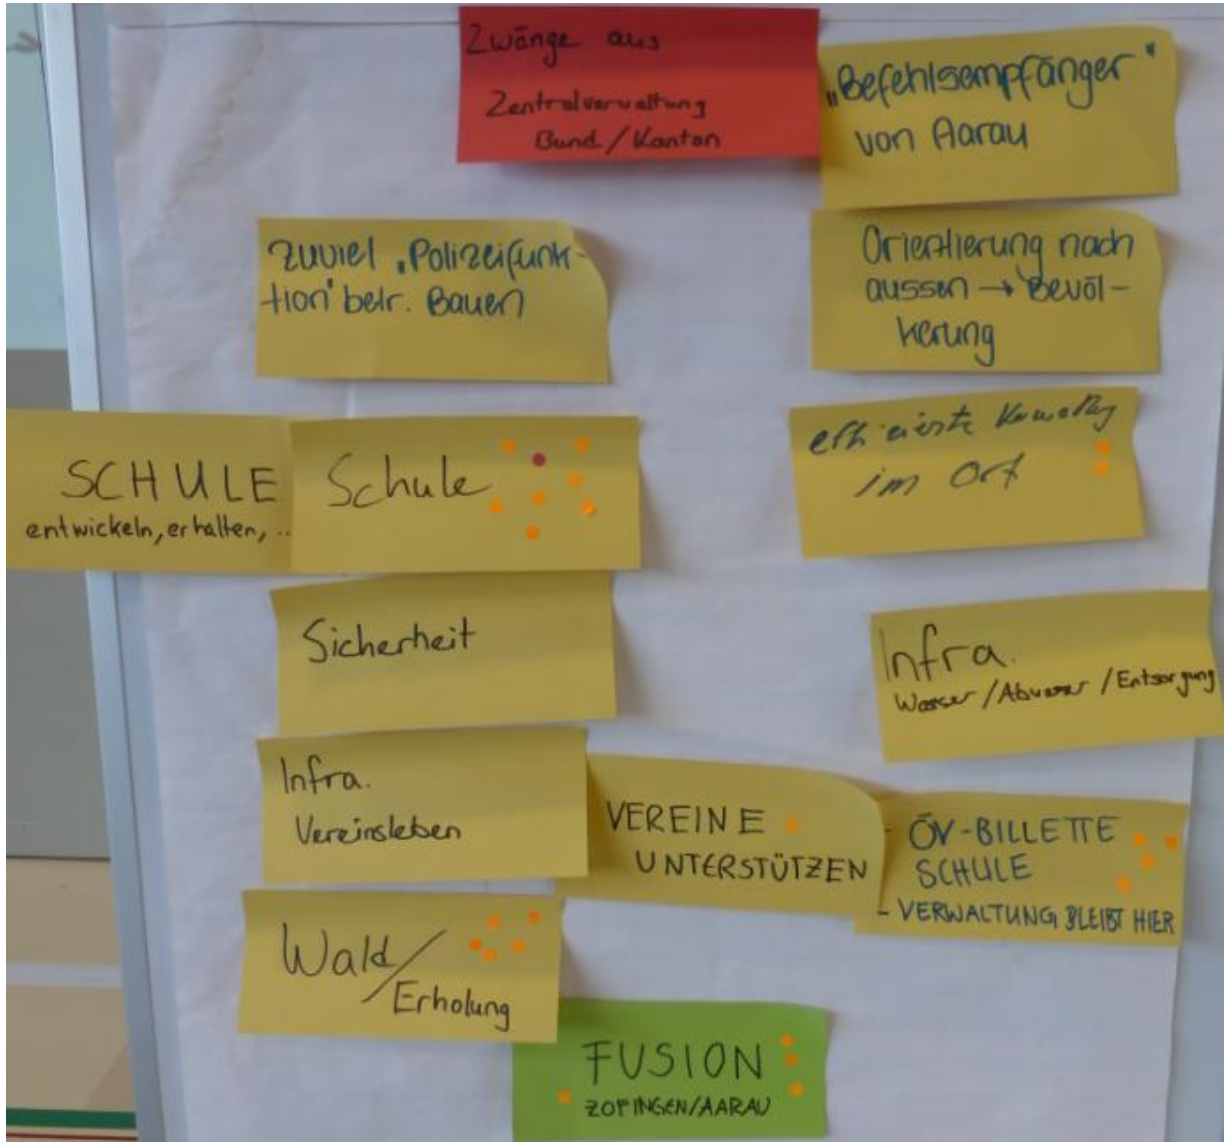 Zwänge aus
Zentralverwaltung
Bund / Kanton
„Befehlsempfänger"
von Aarau
zuviel „Polizeifunk-
tion" betr. Bauen
Orientierung nach
aussen → Bevöl-
kerung
SCHULE
entwickeln, erhalten, ..
Schule
effiziente Verwaltung
im Ort
Sicherheit
Infra.
Wasser / Abwasser / Entsorgung
Infra.
Vereinsleben
VEREINE
UNTERSTÜTZEN
- ÖV-BILLETTE
SCHULE
- VERWALTUNG BLEIBT HIER
Wald/
Erholung
FUSION
ZOFINGEN/AARAU